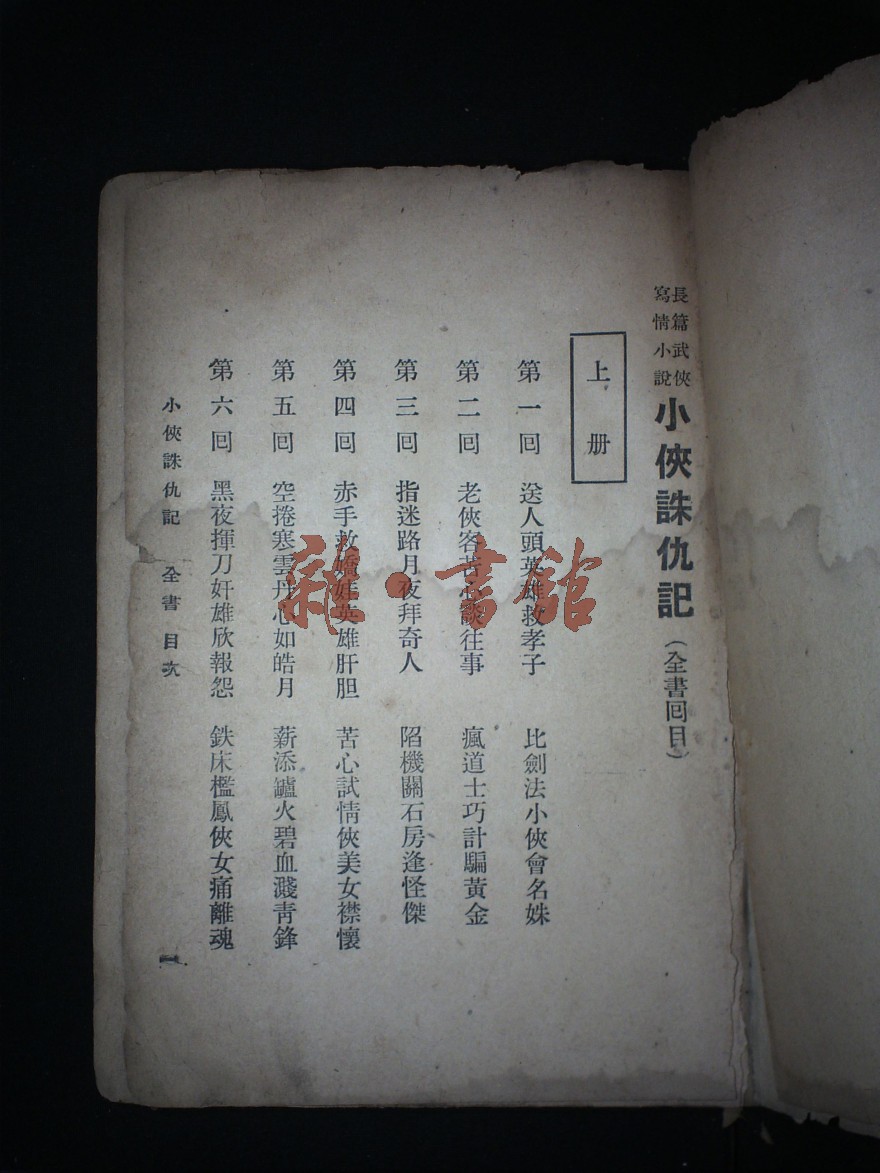 長篇武俠
寫情小說
小俠誅仇記(全書囘目)
上册
第一囘 送人頭英雄救孝子 比劍法小俠會名姝
第二囘 老俠客苦心談往事 瘋道士巧計騙黃金
第三囘 指迷路月夜拜奇人 陷機關石房逢怪傑
第四囘 赤手救嬌娃英雄肝胆 苦心試情俠美女襟懷
第五囘 空捲寒雲丹心如皓月 薪添罏火碧血濺青鋒
第六囘 黑夜揮刀奸雄欣報怨 鉄床檻鳳俠女痛離魂
小俠誅仇記 全書目次
一
雜·書館